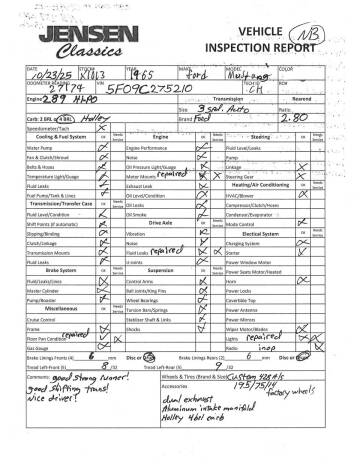 JENSEN
Classics
VEHICLE
INSPECTION REPORT
NB
DATE STOCK# YEAR MAKE MODEL COLOR
10/23/25 1965 Ford Mustang
ODOMETER READING VIN TECH ID RO#
27174 5F09C275210 CH
Engine 289 HIPO Transmission Rearend
Size 3 spd. Auto Ratio
Carb: 2 BRL 4 BRL Holley Brand Ford 2.80
Speedometer/Tach
Cooling & Fuel System OK Needs Service Engine OK Needs Service Steering OK Needs Service
Water Pump Engine Performance Fluid Level/Leaks
Fan & Clutch/Shroud Noise Pump
Belts & Hoses Oil Pressure Light/Gauge Linkage
Temperature Light/Guage Motor Mounts repaired Steering Gear
Fluid Leaks Exhaust Leak Heating/Air Conditioning OK Needs Service
Fuel Pump/Tank & Lines Oil Level/Condition HVAC/Blower
Transmission/Transfer Case OK Needs Service Oil Leaks Compressor/Clutch/Hoses
Fluid Level/Condition Oil Smoke Condenser/Evaporator
Shift Points (if automatic) Drive Axle OK Needs Service Mode Control
Slipping/Binding Vibration Electical System OK Needs Service
Clutch/Linkage Noise Charging System
Transmission Mounts Fluid Leaks repaired Starter
Fluid Leaks U-Joints Power Window Motor
Brake System OK Needs Service Suspension OK Needs Service Power Seats Motor/Heated
Fluid/Leaks/Lines Control Arms Horn
Master Cylinder Ball Joints/King Pins Power Locks
Pump/Booster Wheel Bearings Covertible Top
Miscellaneous OK Needs Service Torsion Bars/Springs Power Antenna
Cruise Control Stabilizer Shaft & Links Power Mirrors
Frame Shocks Wiper Motor/Blades
Floor Pan Condition repaired Lights repaired
Gas Gauge Radio inop
Brake Lining Fronts (4) 6 mm Disc or Brake Lining Rears (2) 6 mm Disc or
Tread Left-Front (5) 8 /32 Tread Left-Rear (5) 9 /32
Comments: good strong runner!
good shifting trans!
Nice driver!
Wheels & Tires (Brand & Size)
195/75/14
factory wheels
Accessories
dual exhaust
Aluminum intake manifold
Holley 4brl carb